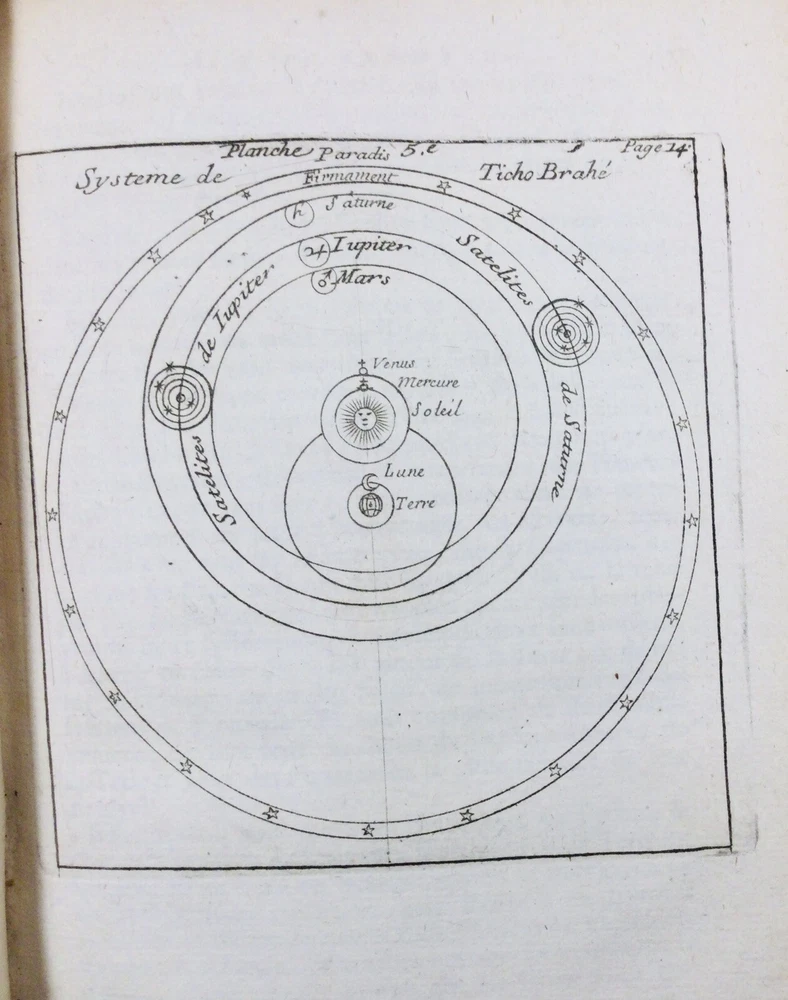 Planche Paradis 5.e Page 14
Systeme de Ticho Brahé
Firmament
Saturne
♄
♃ Iupiter
♂ Mars
Satelites de Iupiter
Satelites de Saturne
Venus
Mercure
Soleil
Lune
Terre